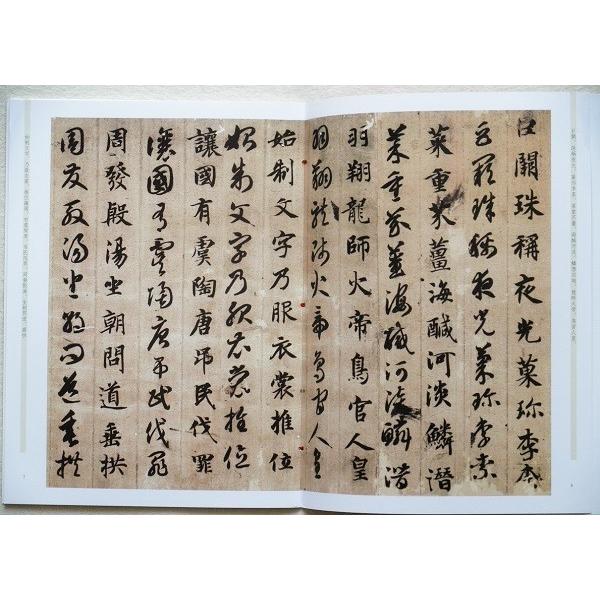 巨闕珠稱夜光菓珍李柰
巨闕珠稱夜光菓珍李柰
菜重芥薑海鹹河淡鱗潛
菜重芥薑海鹹河淡鱗潛
羽翔龍師火帝鳥官人皇
羽翔龍師火帝鳥官人皇
始制文字乃服衣裳推位
始制文字乃服衣裳推位
讓國有虞陶唐弔民伐罪
讓國有虞陶唐弔民伐罪
周發殷湯坐朝問道垂拱
周發殷湯坐朝問道垂拱